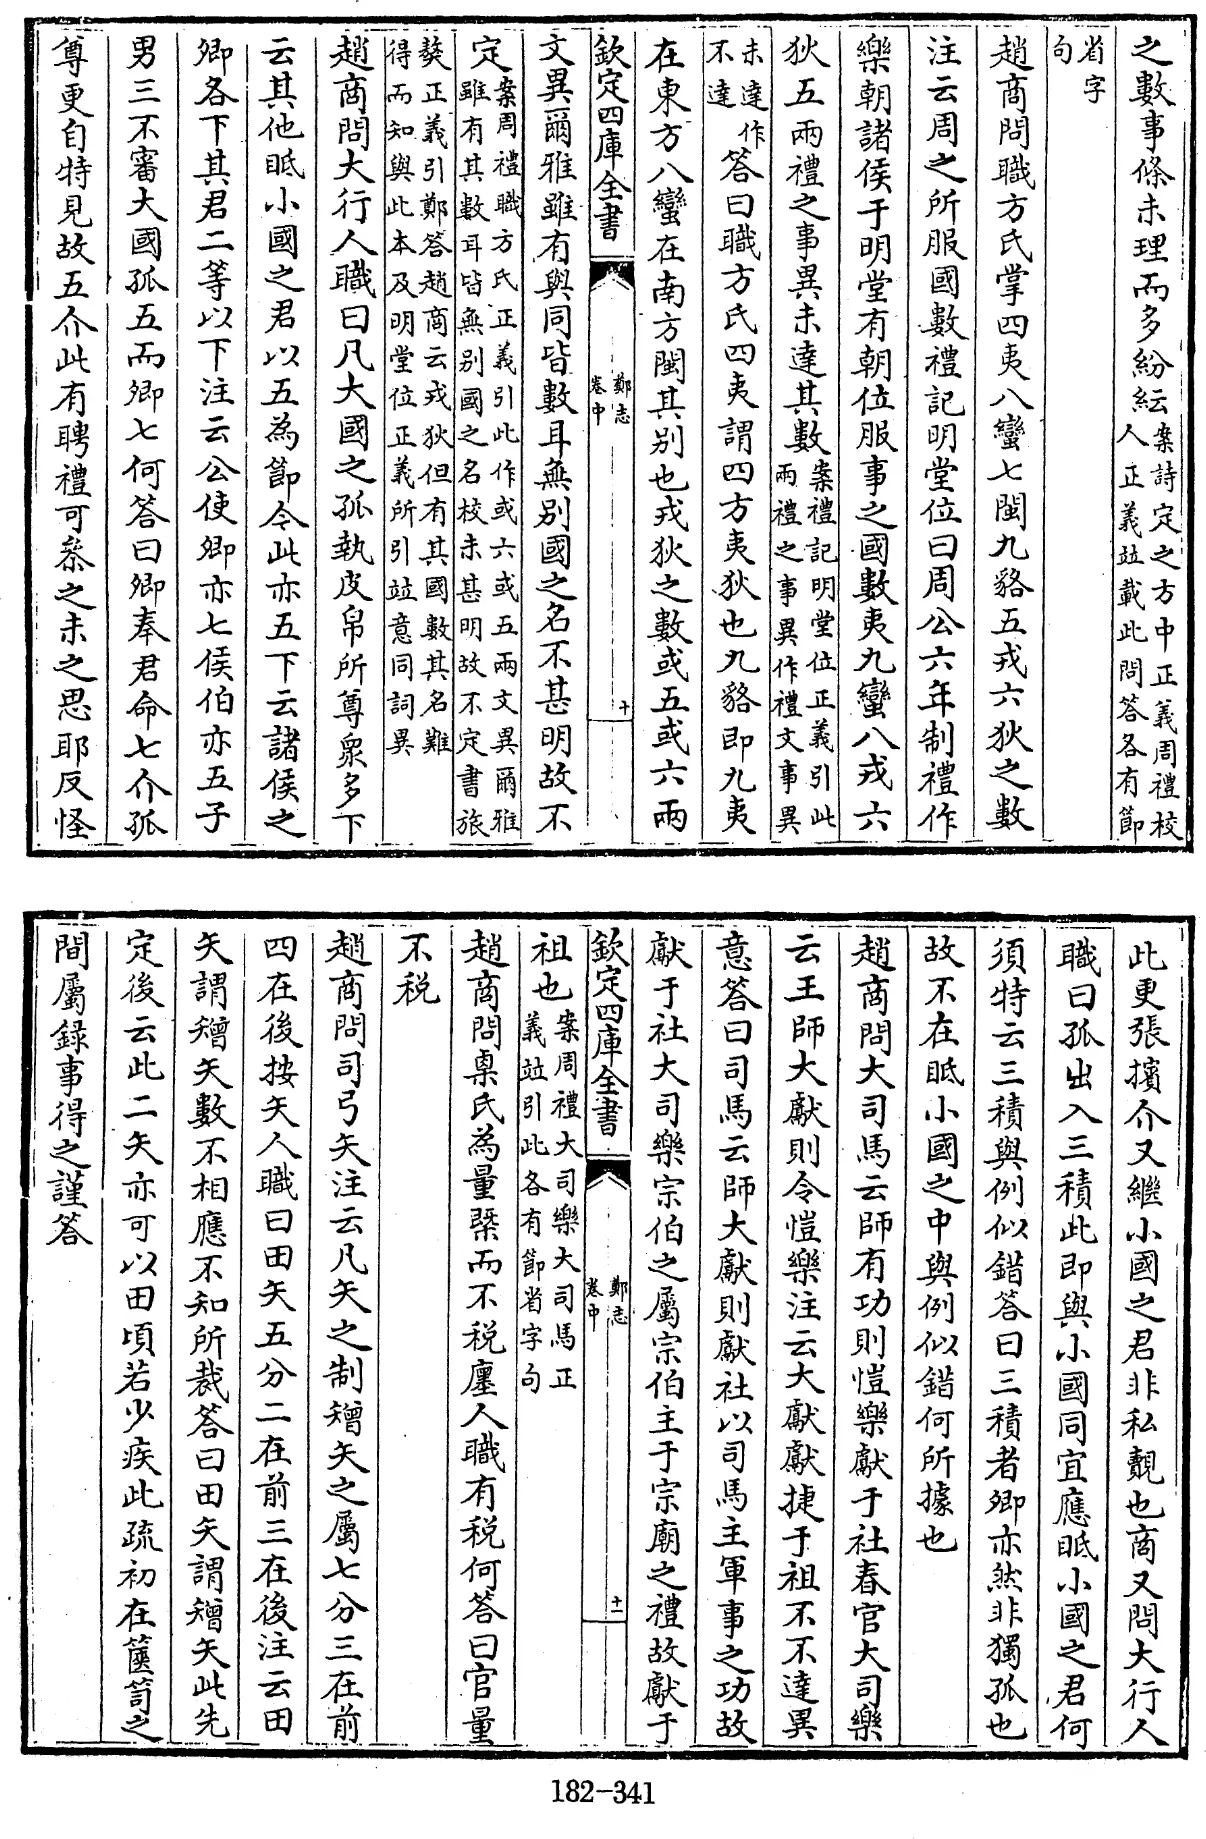 之數事條未理而多紛紜案詩定之方中正義周禮校
人正義竝載此問答各有節
省字
句
趙商問職方氏掌四夷八蠻七閩九貉五戎六狄之數
注云周之所服國數禮記明堂位曰周公六年制禮作
樂朝諸侯于明堂有朝位服事之國數夷九蠻八戎六
狄五兩禮之事異未達其數案禮記明堂位正義引此
兩禮之事異作禮文事異
未達作
不達
答曰職方氏四夷謂四方夷狄也九貉即九夷
在東方八蠻在南方閩其别也戎狄之數或五或六兩
欽定四庫全書
鄭志
卷中
十
文異爾雅雖有與同皆數耳無别國之名不甚明故不
定案周禮職方氏正義引此作或六或五兩文異爾雅
雖有其數耳皆無别國之名校未甚明故不定書旅
獒正義引鄭答趙商云戎狄但有其國數其名難
得而知與此本及明堂位正義所引竝意同詞異
趙商問大行人職曰凡大國之孤執皮帛所尊衆多下
云其他眂小國之君以五為節今此亦五下云諸侯之
卿各下其君二等以下注云公使卿亦七侯伯亦五子
男三不審大國孤五而卿七何答曰卿奉君命七介孤
尊更自特見故五介此有聘禮可叅之未之思耶反怪
此更張擯介又繼小國之君非私覿也商又問大行人
職曰孤出入三積此即與小國同宜應眂小國之君何
須特云三積與例似錯答曰三積者卿亦然非獨孤也
故不在眂小國之中與例似錯何所據也
趙商問大司馬云師有功則愷樂獻于社春官大司樂
云王師大獻則令愷樂注云大獻獻捷于祖不不達異
意答曰司馬云師大獻則獻社以司馬主軍事之功故
獻于社大司樂宗伯之屬宗伯主于宗廟之禮故獻于
欽定四庫全書
鄭志
卷中
十一
祖也案周禮大司樂大司馬正
義竝引此各有節省字句
趙商問㮚氏為量槩而不税廛人職有税何答曰官量
不税
趙商問司弓矢注云凡矢之制矰矢之屬七分三在前
四在後按矢人職曰田矢五分二在前三在後注云田
矢謂矰矢數不相應不知所裁答曰田矢謂矰矢此先
定後云此二矢亦可以田頃若少疾此疏初在篋笥之
間屬録事得之謹答
182-341